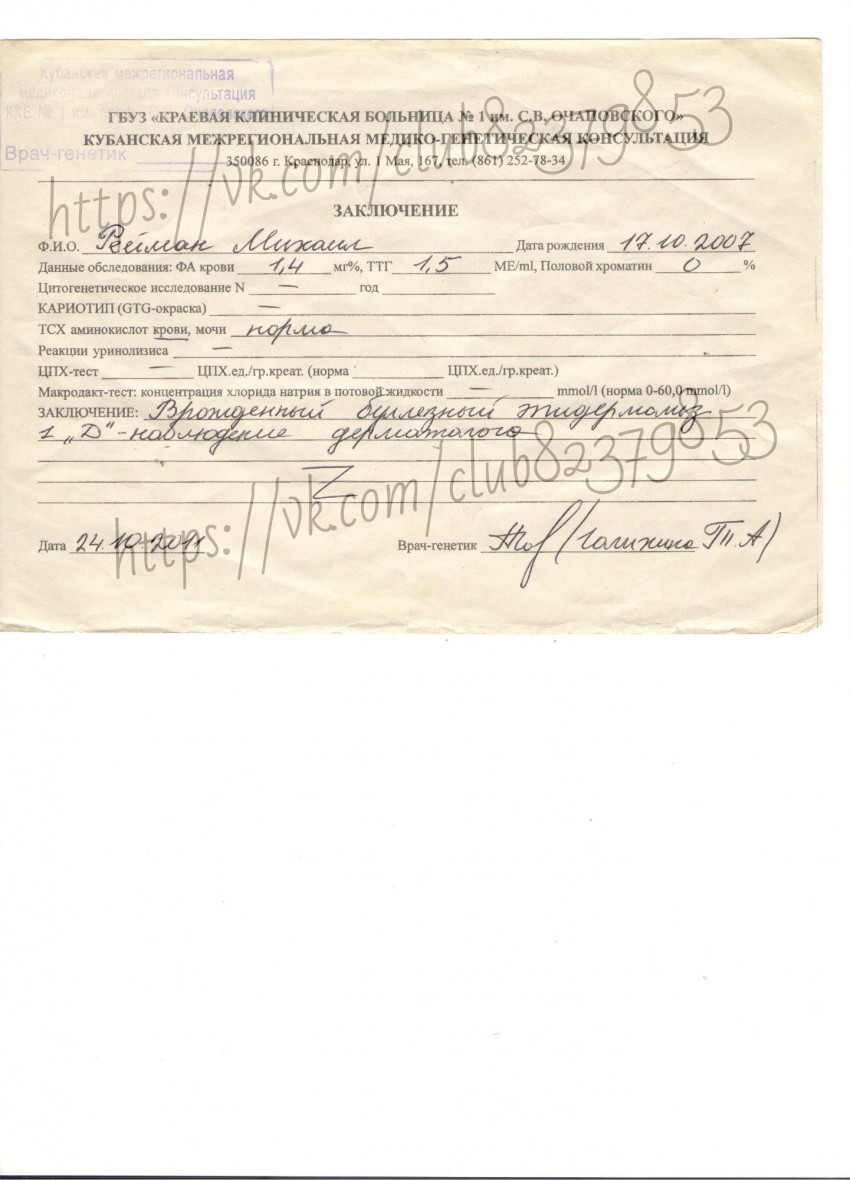 Кубанская межрегиональная
медико-генетическая консультация
ККБ № 1 им.
Врач-генетик
ГБУЗ «КРАЕВАЯ КЛИНИЧЕСКАЯ БОЛЬНИЦА № 1 им. С.В. ОЧАПОВСКОГО»
КУБАНСКАЯ МЕЖРЕГИОНАЛЬНАЯ МЕДИКО-ГЕНЕТИЧЕСКАЯ КОНСУЛЬТАЦИЯ
350086 г. Краснодар, ул. 1 Мая, 167, тел. (861) 252-78-34
https://vk.com/club82379853
ЗАКЛЮЧЕНИЕ
Ф.И.О. Рейман Михаил Дата рождения 17.10.2007
Данные обследования: ФА крови 1,4 мг%, ТТГ 1,5 МЕ/ml, Половой хроматин 0 %
Цитогенетическое исследование N — год
КАРИОТИП (GTG-окраска) —
ТСХ аминокислот крови, мочи норма
Реакции уринолизиса —
ЦПХ-тест — ЦПХ.ед./гр.креат. (норма ЦПХ.ед./гр.креат.)
Макродакт-тест: концентрация хлорида натрия в потовой жидкости — mmol/l (норма 0-60,0 mmol/l)
ЗАКЛЮЧЕНИЕ: Врожденный буллезный эпидермолиз
1 „Д" - наблюдение дерматолога
https://vk.com/club82379853
Дата 24.10.2011 Врач-генетик (Голихина Т.А)